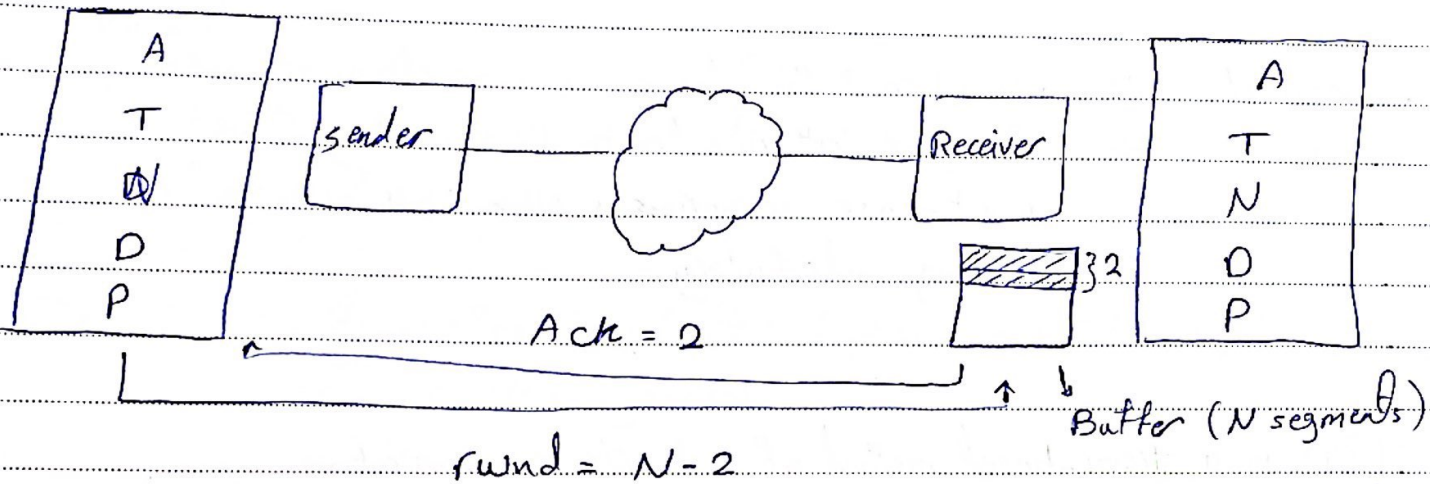 A
T
N
D
P
sender
Receiver
A
T
N
D
P
}2
Ack = 2
Buffer (N segments)
rwnd = N-2